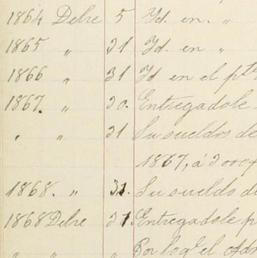 1864 Debre 5 Yd. en. "
1865 " 31 Yd. en "
1866 " 31 Yd en el pte
1867. " 30. Entregadole
" " 31 Su sueldos de
1867, á
1868. " 31. Su sueldo de
1868 Debre 31 Entregadole p
" " " Por